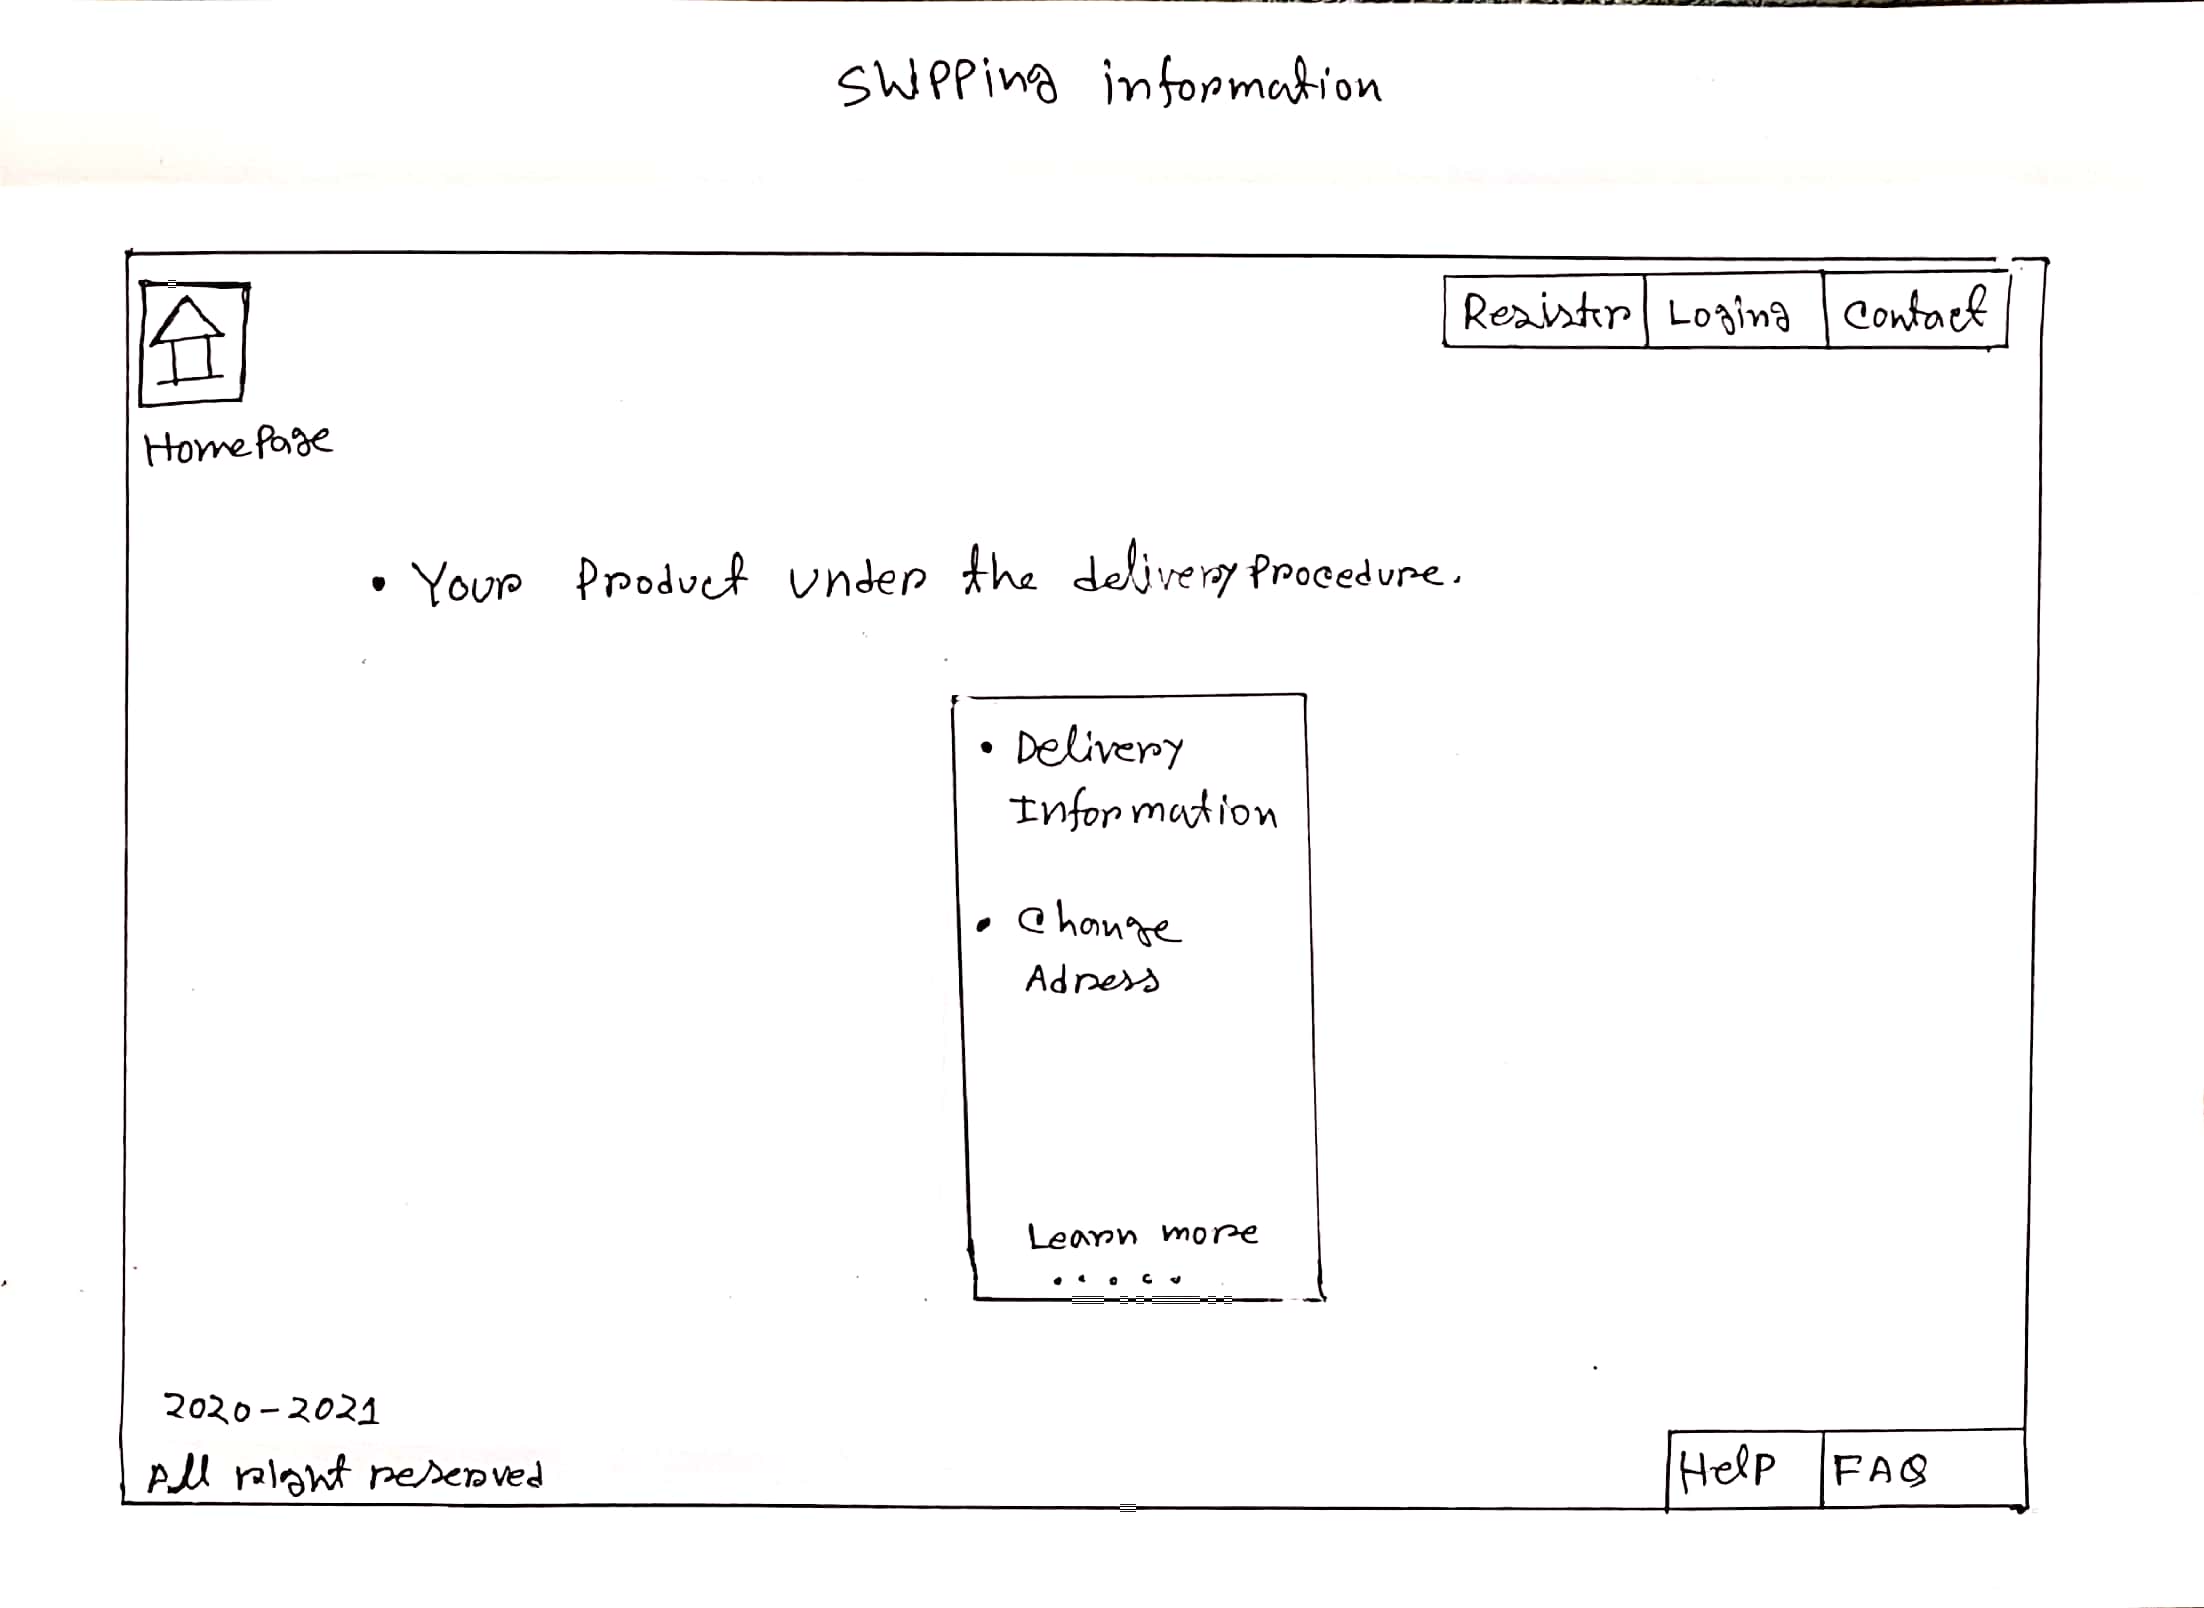 SHIPPing information
Register Loging Contact
HomePage
• Your Product under the delivery Procedure.
• Delivery
Information
• Change
Adress
Learn more
.....
2020-2021
All right reserved
Help FAQ